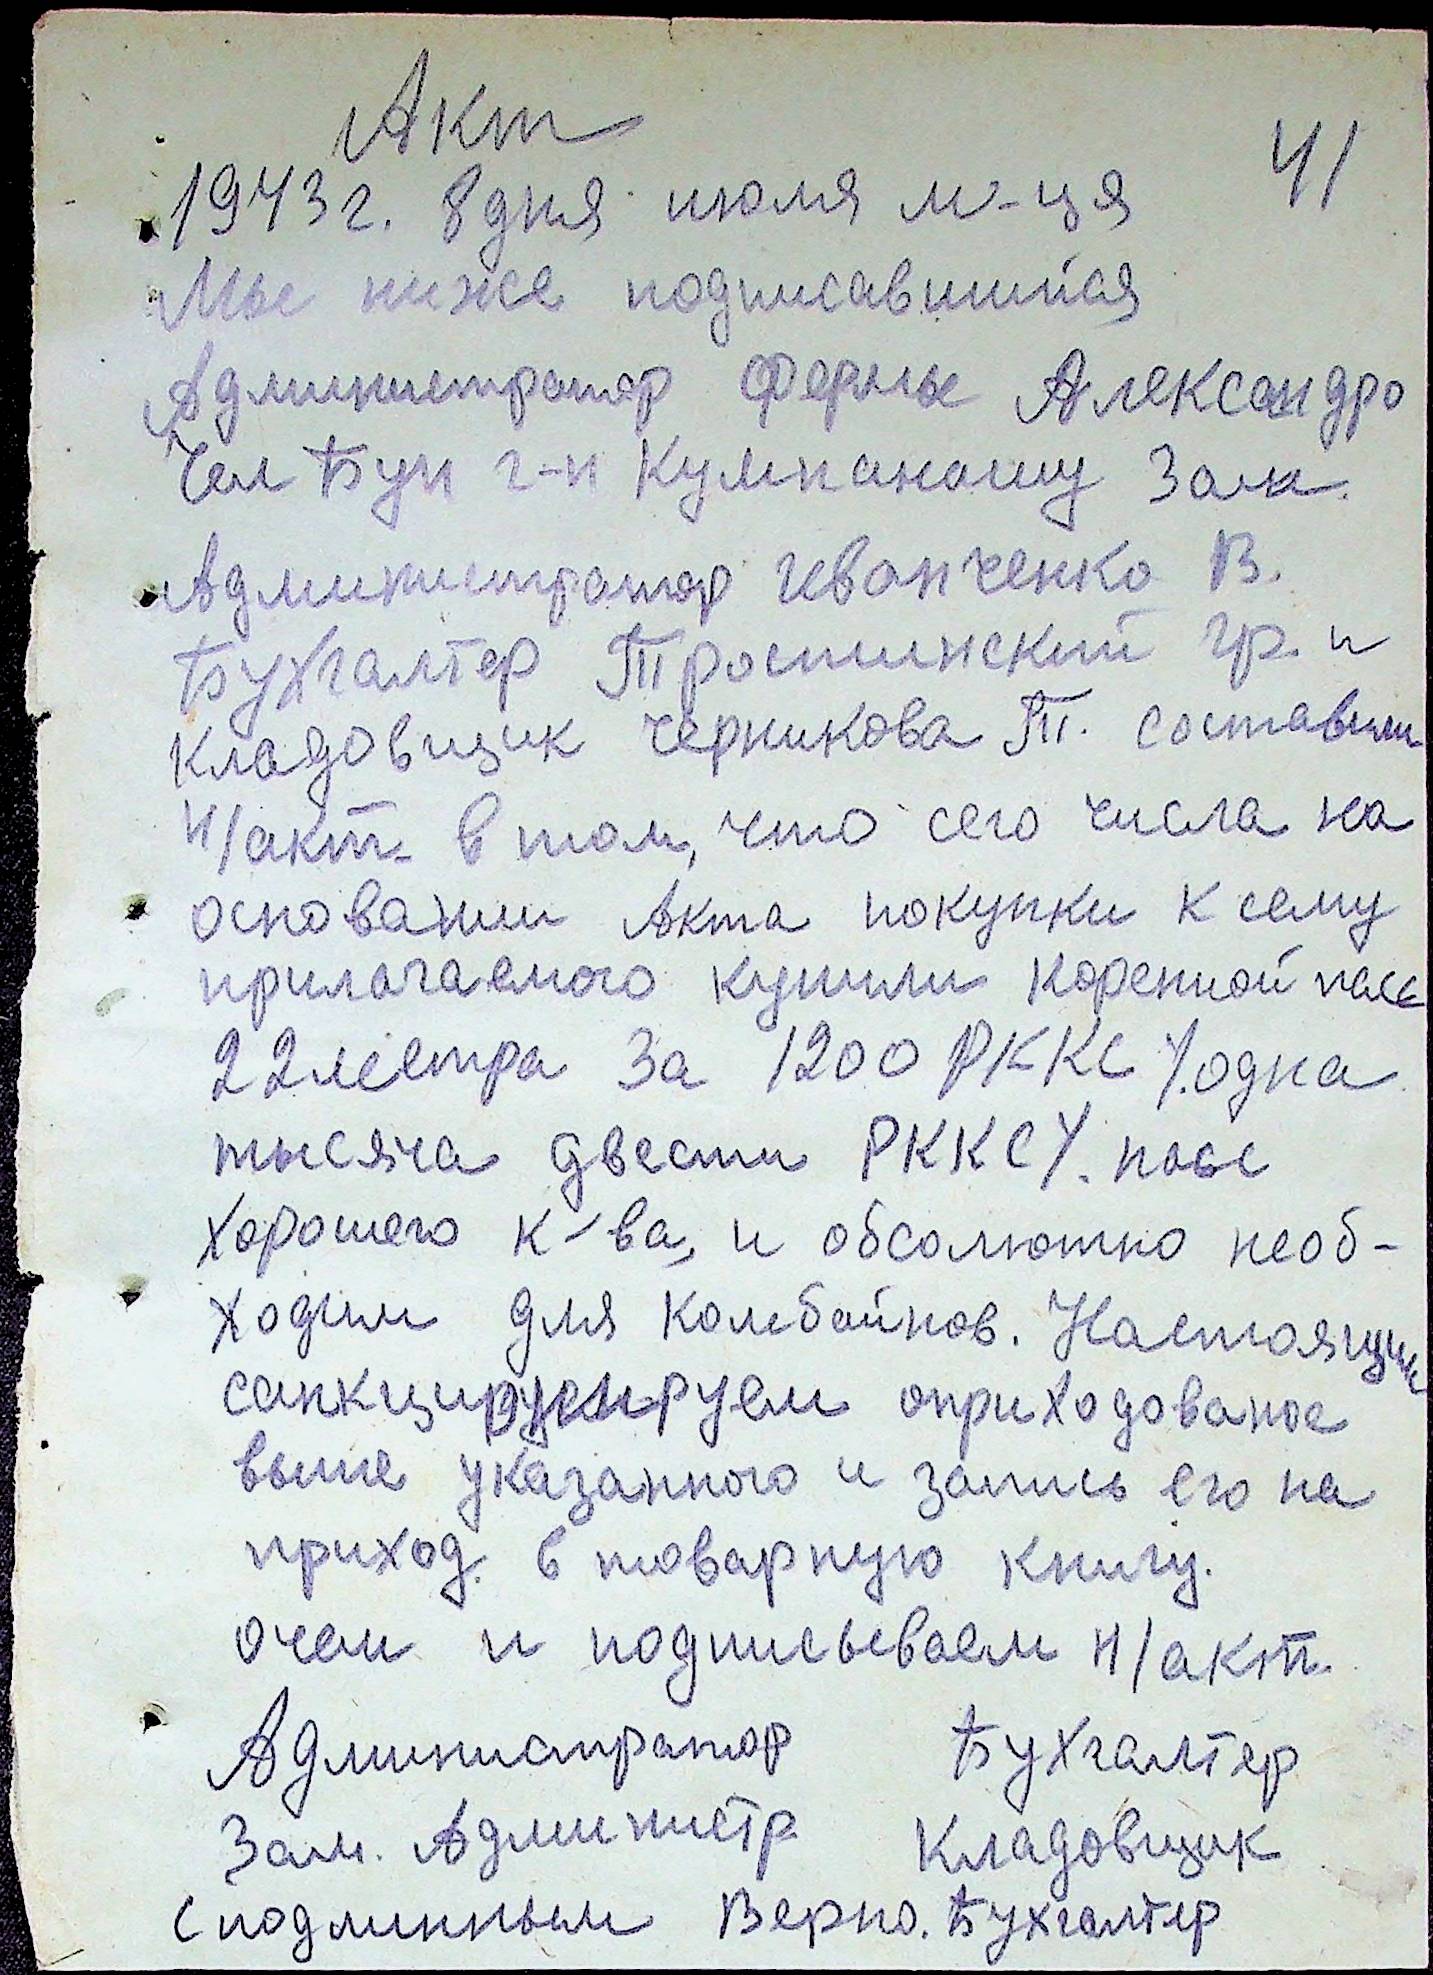 Акт
41
1943 г. 8 дня июля м-ця
Мы ниже подписавшийся
Администратор Фермы Александро
Чел Бун г-н Кумпанашу Зам.
Администратор Иванченко В.
Бухгалтер Тростинский Гр. и
кладовщик Черникова Т. составили
н/акт в том, что сего числа на
основании Акта покупки к сему
прилагаемого купили коренной пасс
22 метра за 1200 РККС /. одна
тысяча двести РККС /. пасс
хорошего к-ва, и обсолютно необ-
ходим для комбайнов. Настоящим
санкци руем оприходованое
выше указанного и запись его на
приход в товарную книгу.
очем и подписываем н/акт.
Администратор Бухгалтер
Зам. Администр Кладовщик
С подлинным Верно. Бухгалтер